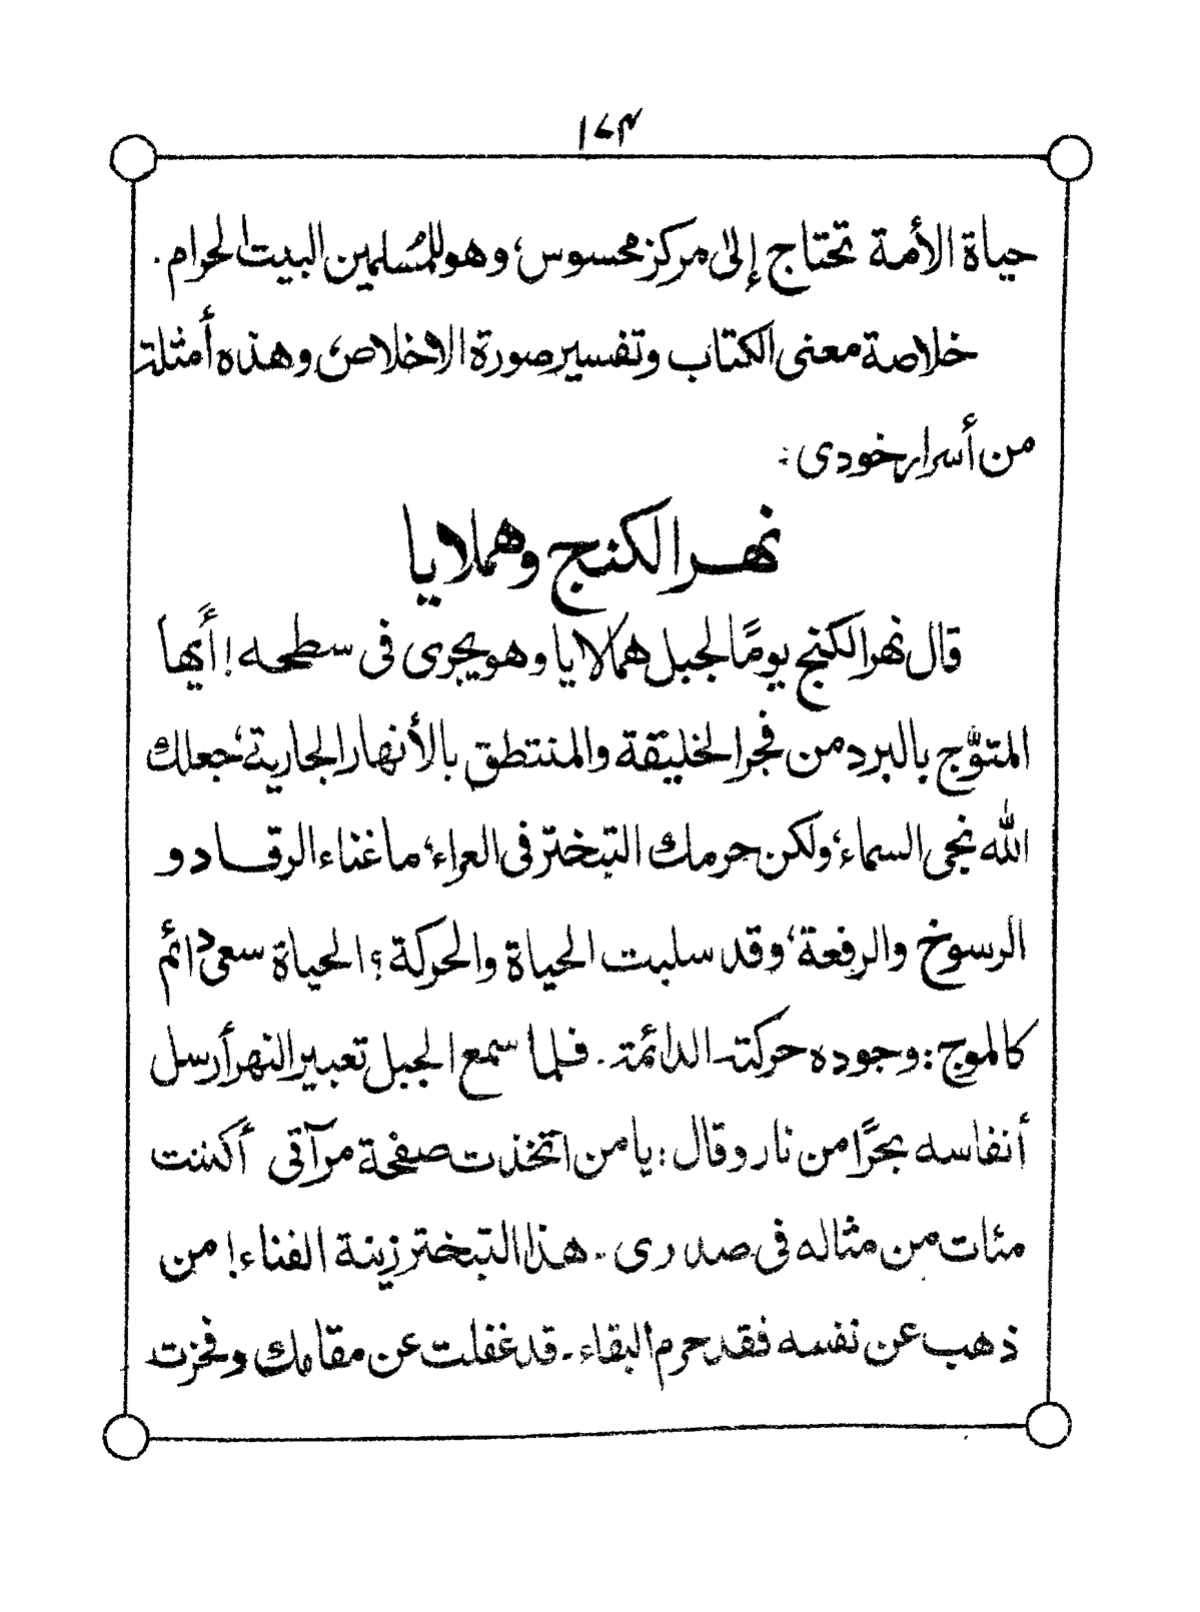 ١٧٤
حياة الأمة تحتاج إلى مركز محسوس، وهو للمُسلمين البيت الحرام.
خلاصة معنى الكتاب وتفسير صورة الاخلاص، وهذه أمثلة
من أسرار خودى :
نهر الكنج وهملايا
قال نهر الكنج يومًا لجبل همالايا وهو يجرى فى سطحه! أيها
المتوّج بالبرد من فجر الخليقة والمنتطق بالأنهار الجارية، جعلك
الله نجى السماء، ولكن حرمك التبختر فى العراء، ما غناء الرقاد و
الرسوخ والرفعة، وقد سلبت الحياة والحركة؟ الحياة سعى دائم
كالموج: وجوده حركته الدائمة. فلما سمع الجبل تعبير النهر أرسل
أنفاسه بحرًا من نار وقال: يا من اتخذت صفحة مرآتى أكننت
مئات من مثاله فى صدرى. هذا التبختر زينة الفناء! من
ذهب عن نفسه فقد حرم البقاء. قد غفلت عن مقامك وفخرت